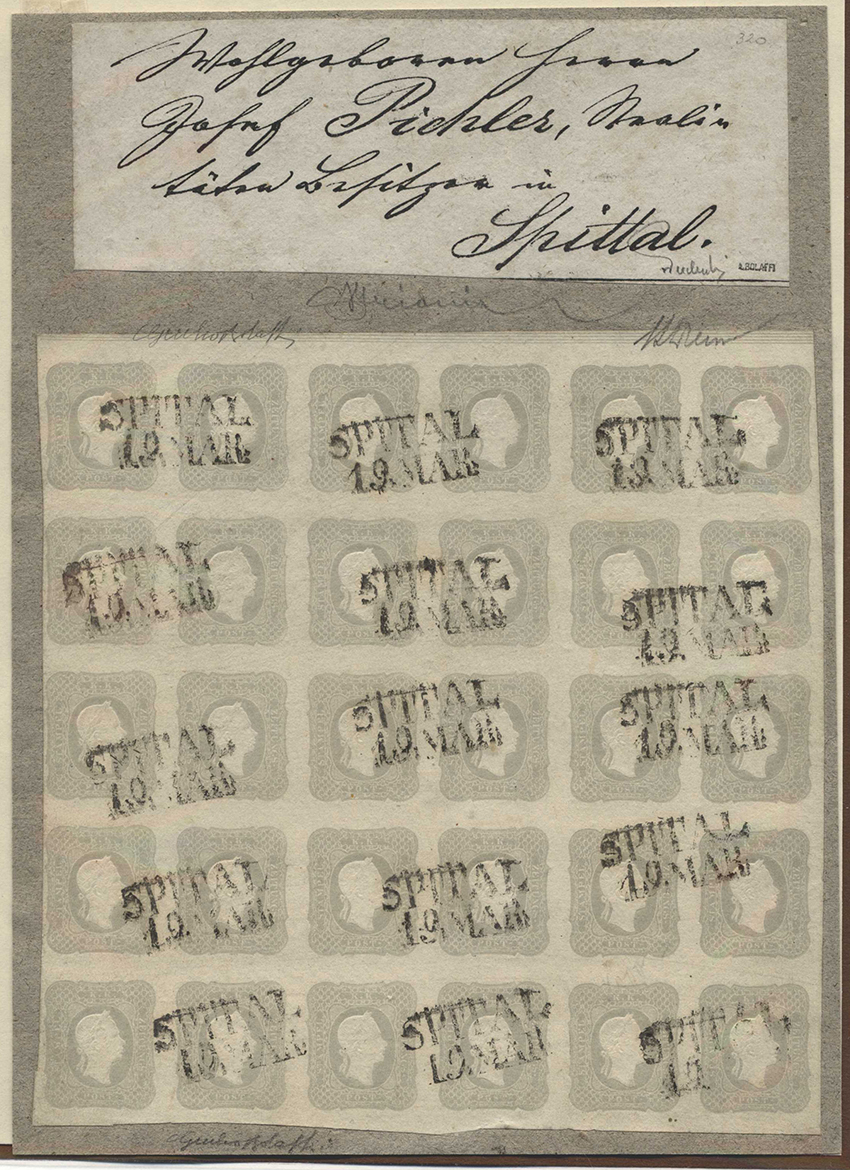 320
Wohlgeboren Herrn
Josef Pichler, Reali-
täten Besitzer in
Spittal.
A.BOLAFFI
SPITAL
19.MAR
SPITAL
19.MAR
SPITAL
19.MAR
SPITAL
19.MAR
SPITAL
19.MAR
SPITAL
19.MAR
SPITAL
19.MAR
SPITAL
19.MAR
SPITAL
19.MAR
SPITAL
19.MAR
SPITAL
19.MAR
SPITAL
19.MAR
SPITAL
19.MAR
SPITAL
19.MAR
SPITAL
19